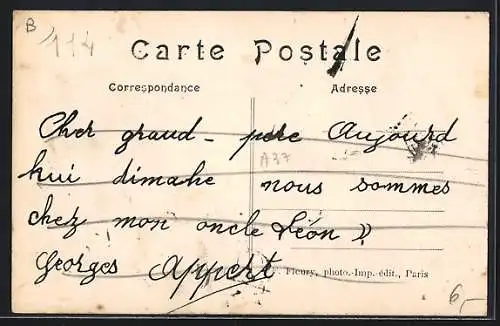 B
114
Carte Postale
Correspondance
Adresse
Cher grand-père Aujourd
hui dimahe nous sommes
A37
chez mon oncle Léon »
Georges Appert
Fleury, photo.-Imp.-édit., Paris
6,-